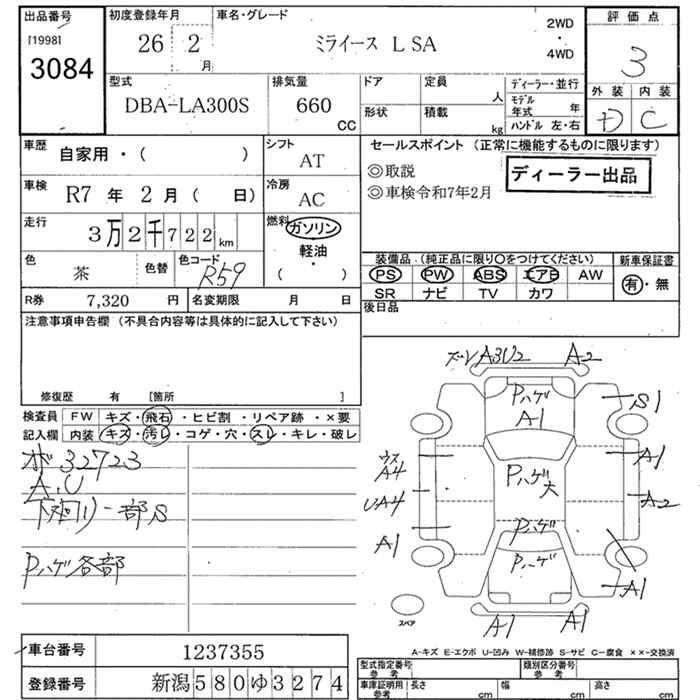 出品番号
[1998]
3084
初度登録年月
26 2
月
車名・グレード
ミライース L SA
2WD
・
4WD
評価点
3
外装 内装
D C
型式
DBA-LA300S
排気量
660
CC
ドア
定員
人
形状
積載
kg
ディーラー・並行
モデル年式 年
ハンドル 左・右
車歴
自家用・( )
シフト
AT
車検
R7 年 2 月 ( 日)
冷房
AC
走行
3万2千722km
燃料
ガソリン
軽油
・
( )
色
茶
色替
色コード
R59
R券
7,320 円
名変期限 月 日
セールスポイント (正常に機能するものに限ります)
◎取説
◎車検令和7年2月
ディーラー出品
装備品 (純正品に限り○をつけてください)
新車保証書
PS PW ABS エアB AW
SR ナビ TV カワ
有・無
後日品
注意事項申告欄 (不具合内容等は具体的に記入して下さい)
修復歴 有 [箇所 ]
検査員
記入欄
FW キズ・飛石・ヒビ割・リペア跡・×要
内装 キズ・汚レ・コゲ・穴・スレ・キレ・破レ
32723
A.U
下廻り一部S
Pハゲ各部
A3U2
A2
Pハゲ
A1
S1
ウス
A4
A1
Pハゲ大
UA4
A2
Pハゲ
A1
Pハゲ
A1
スペア
A1
A1
A-キズ E-エクボ U-凹み W-補修跡 S-サビ C-腐食 ××-交換済
車台番号
1237355
登録番号
新潟580ゆ3274
型式指定番号
参考
類別区分番号
参考
車庫証明用
参考
長さ cm
幅 cm
高さ cm